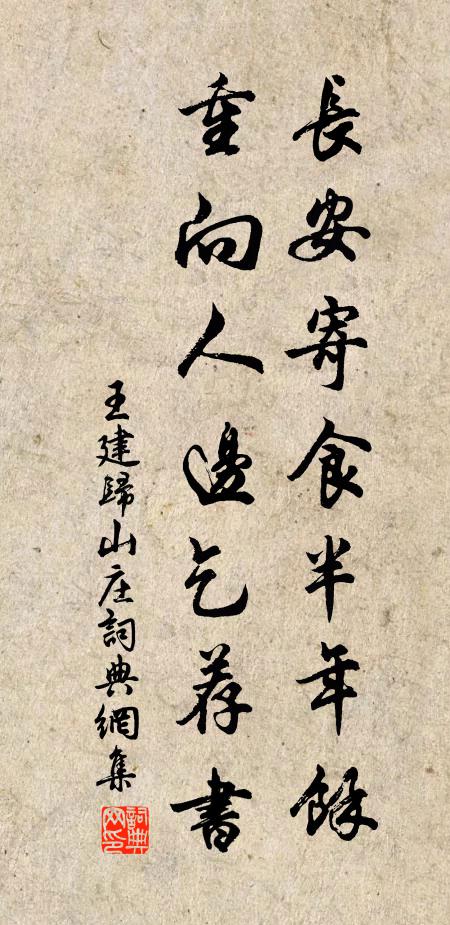 長安寄食半年餘
重向人邊乞荐書
王建歸山庄詞典網集
詞典網印